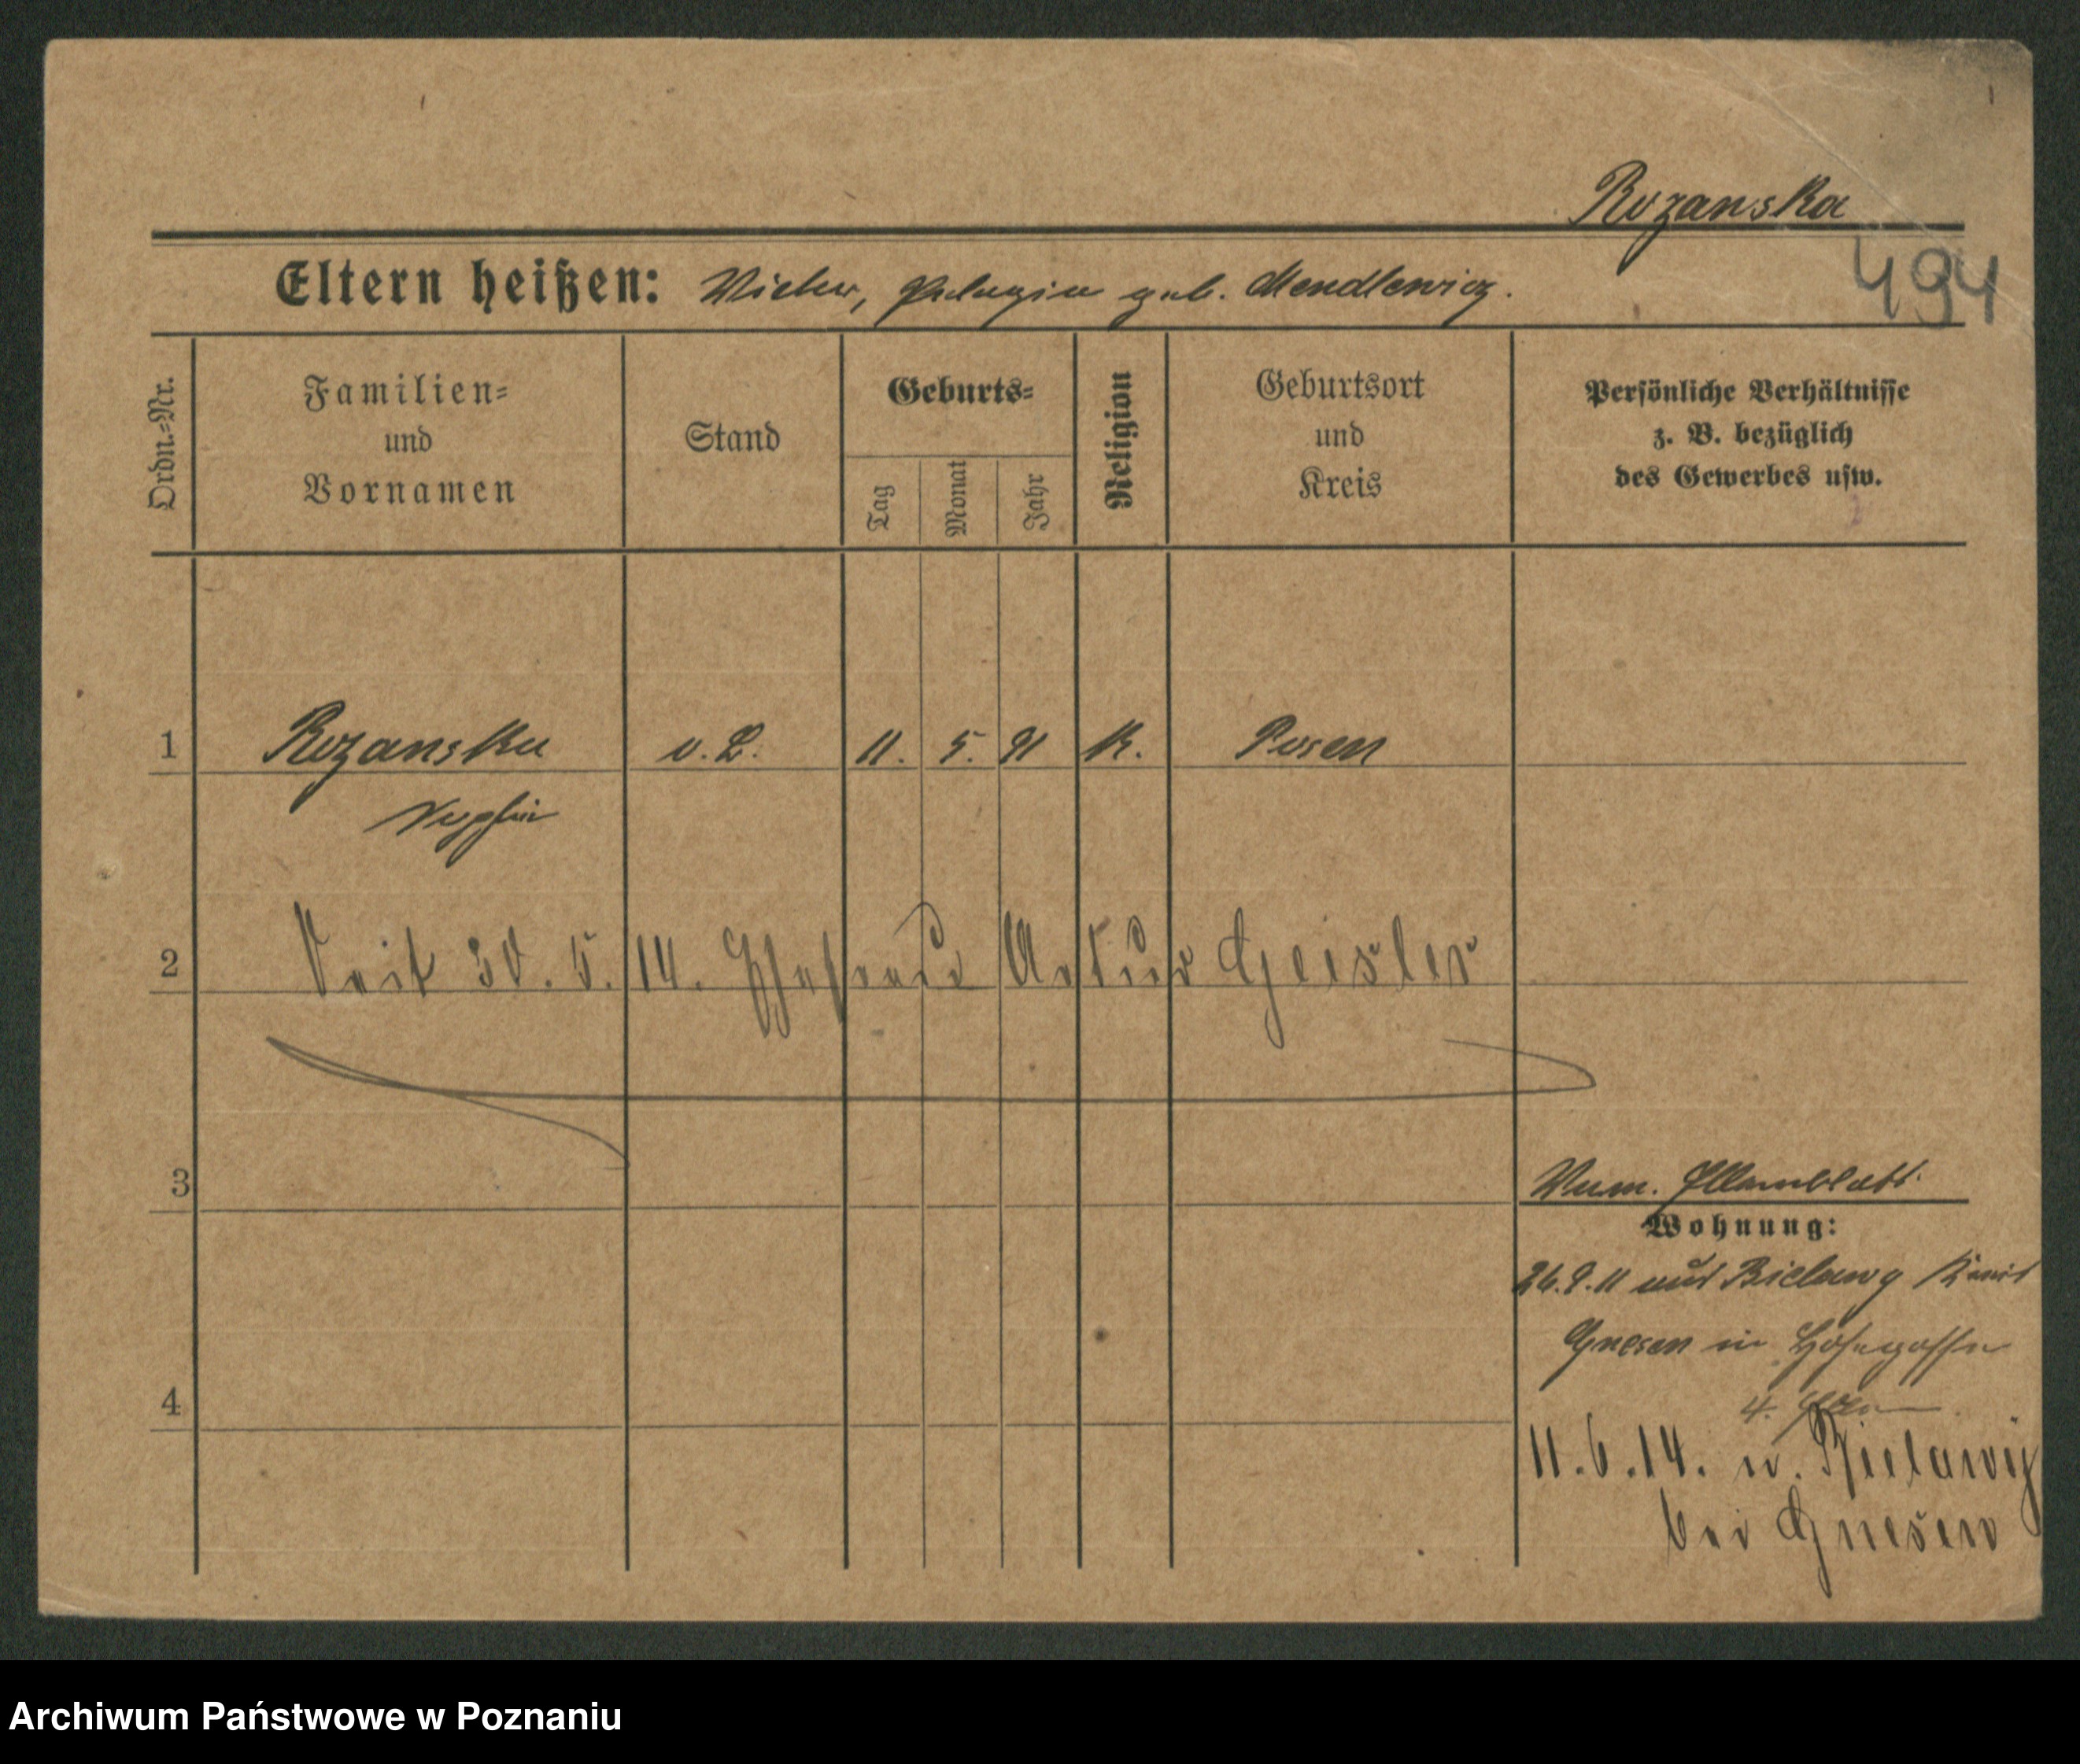 Rozanska
494
Eltern heißen: Victor, Pelagia geb. Mendlewicz.
Ordn.-Nr.
Familien- und Vornamen
Stand
Geburts-
Tag
Monat
Jahr
Religion
Geburtsort und Kreis
Persönliche Verhältnisse z. B. bezüglich des Gewerbes usw.
1 Rozanska o. L. 11. 5. 91 K. Posen
Sophie
2 Seit 30. 5. 14. Ehefrau Artur Geisler
3
Vum.
Wohnung:
26.9.11 aus Bielawy Kreis
Gnesen in
4
4.
11.6.14. n. Bielawy
bei Gnesen
Archiwum Państwowe w Poznaniu